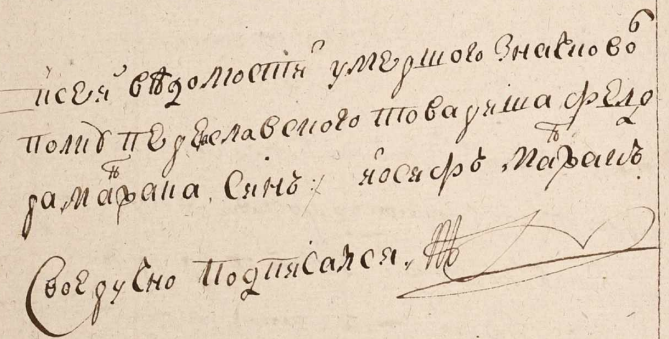 и сей вѣдомости умершого Значкового
полку Переяславского товариша Федо
ра Мартана, Синъ: Иосифъ Мартанъ
Своеручно подписался,